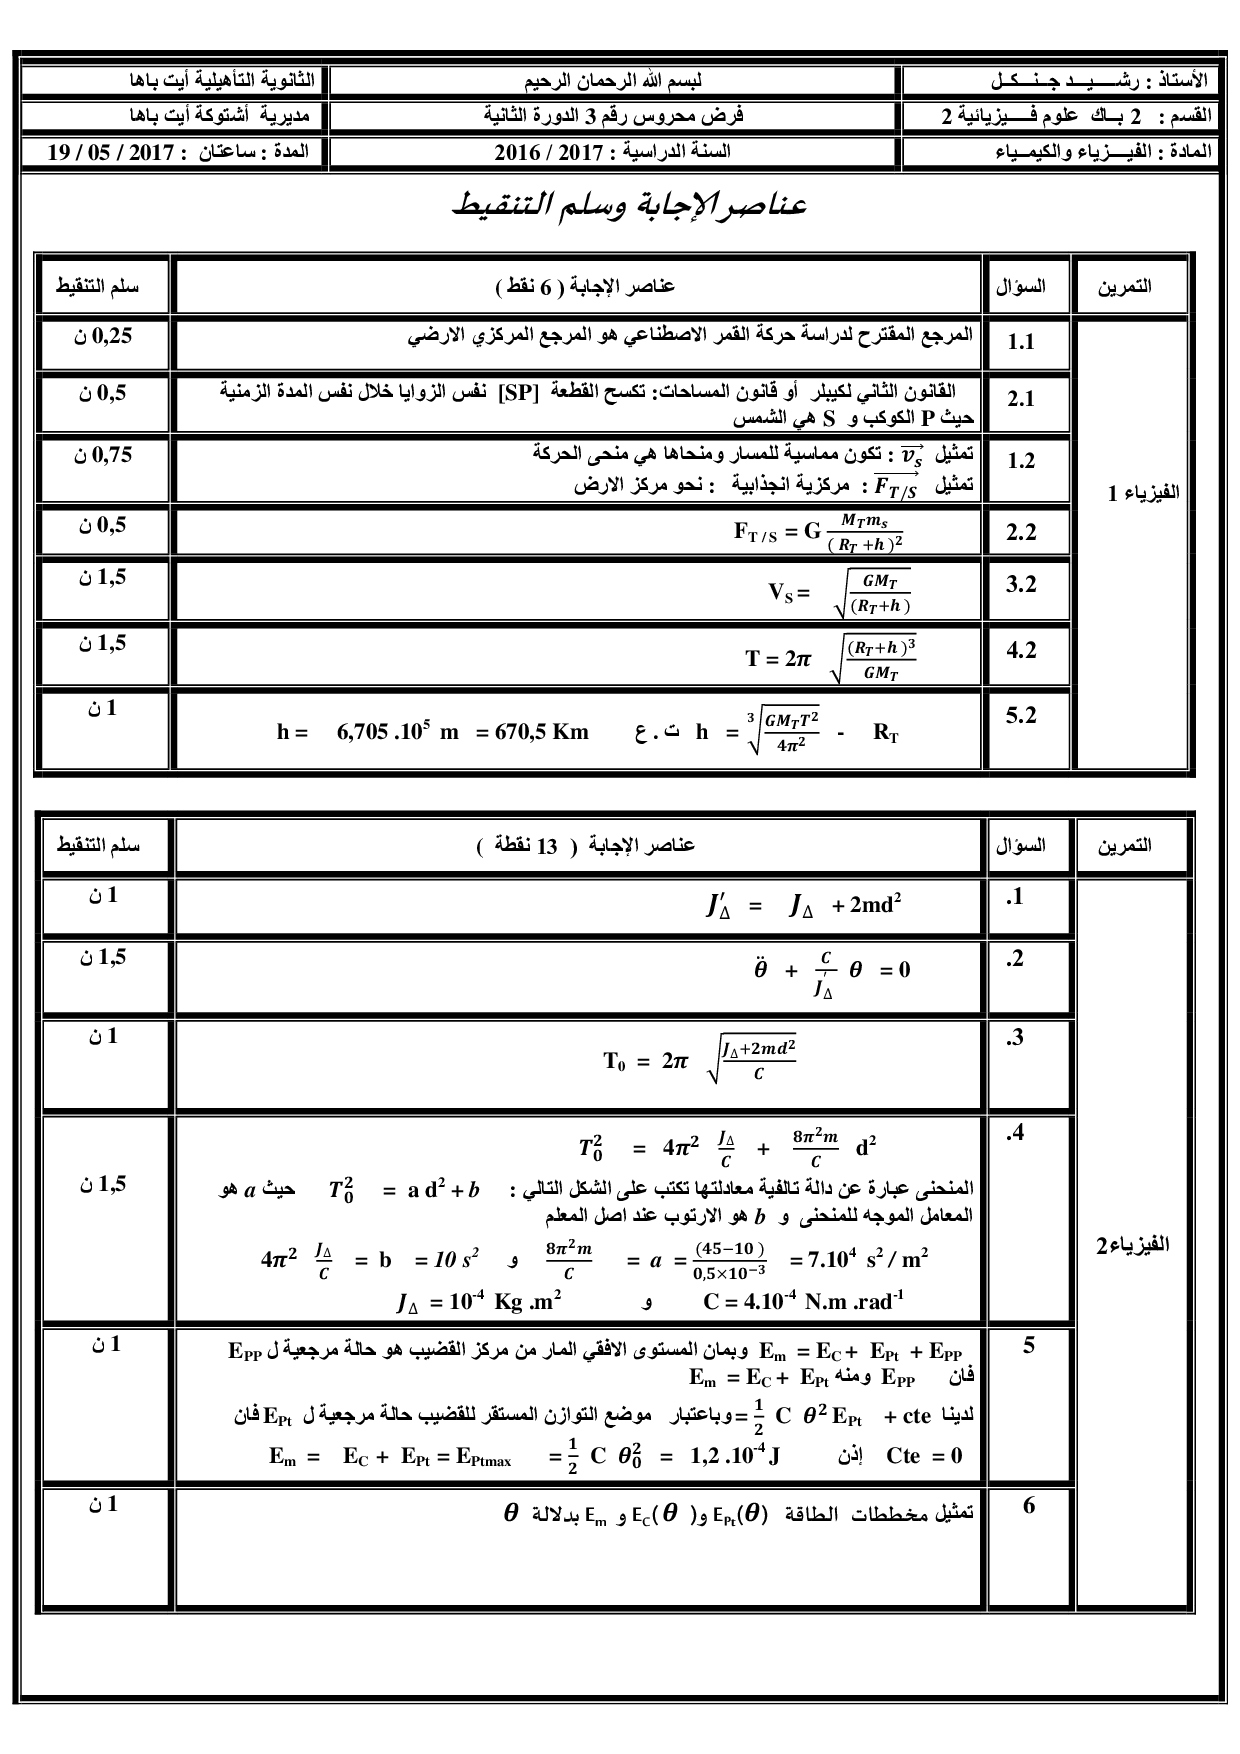 الأستاذ : رشـــــيـــد جــنـــكــل
لبسم الله الرحمان الرحيم
الثانوية التأهيلية أيت باها
القسم : 2 بــاك علوم فـــــيزيائية 2
فرض محروس رقم 3 الدورة الثانية
مديرية أشتوكة أيت باها
المادة : الفيـــزياء والكيمــياء
السنة الدراسية : 2017 / 2016
المدة : ساعتان : 2017 / 05 / 19
عناصر الإجابة وسلم التنقيط
التمرين السؤال عناصر الإجابة ( 6 نقط ) سلم التنقيط
الفيزياء 1
1.1 المرجع المقترح لدراسة حركة القمر الاصطناعي هو المرجع المركزي الارضي 0,25 ن
2.1 القانون الثاني لكيبلر أو قانون المساحات: تكسح القطعة [SP] نفس الزوايا خلال نفس المدة الزمنية 0,5 ن
حيث P الكوكب و S هي الشمس
1.2 تمثيل $\overrightarrow{v_s}$ : تكون مماسية للمسار ومنحاها هي منحى الحركة 0,75 ن
تمثيل $\overrightarrow{F_{T/S}}$ : مركزية انجذابية : نحو مركز الارض
2.2 $F_{T/S} = G \frac{M_T m_s}{(R_T+h)^2}$ 0,5 ن
3.2 $V_S = \sqrt{\frac{GM_T}{(R_T+h)}}$ 1,5 ن
4.2 $T = 2\pi \sqrt{\frac{(R_T+h)^3}{GM_T}}$ 1,5 ن
5.2 $h = \sqrt[3]{\frac{GM_T T^2}{4\pi^2}} - R_T$ ت . ع $h = 6,705 .10^5 m = 670,5 Km$ 1 ن
التمرين السؤال عناصر الإجابة ( 13 نقطة ) سلم التنقيط
الفيزياء2
1. $J'_\Delta = J_\Delta + 2md^2$ 1 ن
2. $\ddot{\theta} + \frac{C}{J'_\Delta} \theta = 0$ 1,5 ن
3. $T_0 = 2\pi \sqrt{\frac{J_\Delta+2md^2}{C}}$ 1 ن
4. $T_0^2 = 4\pi^2 \frac{J_\Delta}{C} + \frac{8\pi^2 m}{C} d^2$ 1,5 ن
المنحنى عبارة عن دالة تالفية معادلتها تكتب على الشكل التالي : $T_0^2 = a d^2 + b$ حيث a هو
المعامل الموجه للمنحنى و b هو الارتوب عند اصل المعلم
$4\pi^2 \frac{J_\Delta}{C} = b = 10 s^2$ و $\frac{8\pi^2 m}{C} = a = \frac{(45-10)}{0,5\times10^{-3}} = 7.10^4 s^2 / m^2$
$J_\Delta = 10^{-4} Kg .m^2$ و $C = 4.10^{-4} N.m .rad^{-1}$
5 $E_m = E_C + E_{Pt} + E_{PP}$ وبمان المستوى الافقي المار من مركز القضيب هو حالة مرجعية ل $E_{PP}$ 1 ن
فان $E_{PP}$ ومنه $E_m = E_C + E_{Pt}$
لدينا $= \frac{1}{2} C \theta^2 E_{Pt} + cte$ وباعتبار موضع التوازن المستقر للقضيب حالة مرجعية ل $E_{Pt}$ فان
$Cte = 0$ إذن $E_m = E_C + E_{Pt} = E_{Ptmax} = \frac{1}{2} C \theta_0^2 = 1,2 .10^{-4} J$
6 تمثيل مخططات الطاقة $E_{Pt}(\theta)$ و $E_C(\theta)$ و $E_m$ بدلالة $\theta$ 1 ن